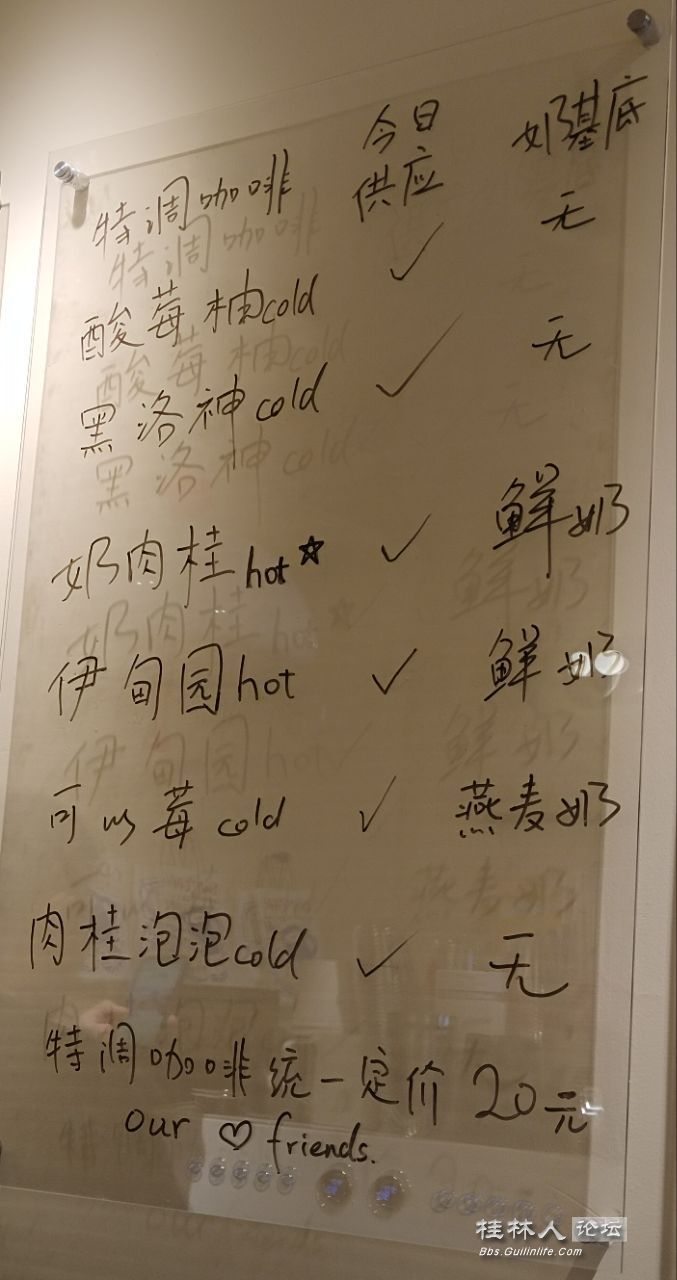 特调咖啡 今日供应 奶基底
酸莓柚cold ✓ 无
黑洛神cold ✓ 无
奶肉桂hot☆ ✓ 鲜奶
伊甸园hot ✓ 鲜奶
可以莓cold ✓ 燕麦奶
肉桂泡泡cold ✓ 无
特调咖啡统一定价20元
our ♡ friends.
桂林人论坛
Bbs.Guilinlife.Com